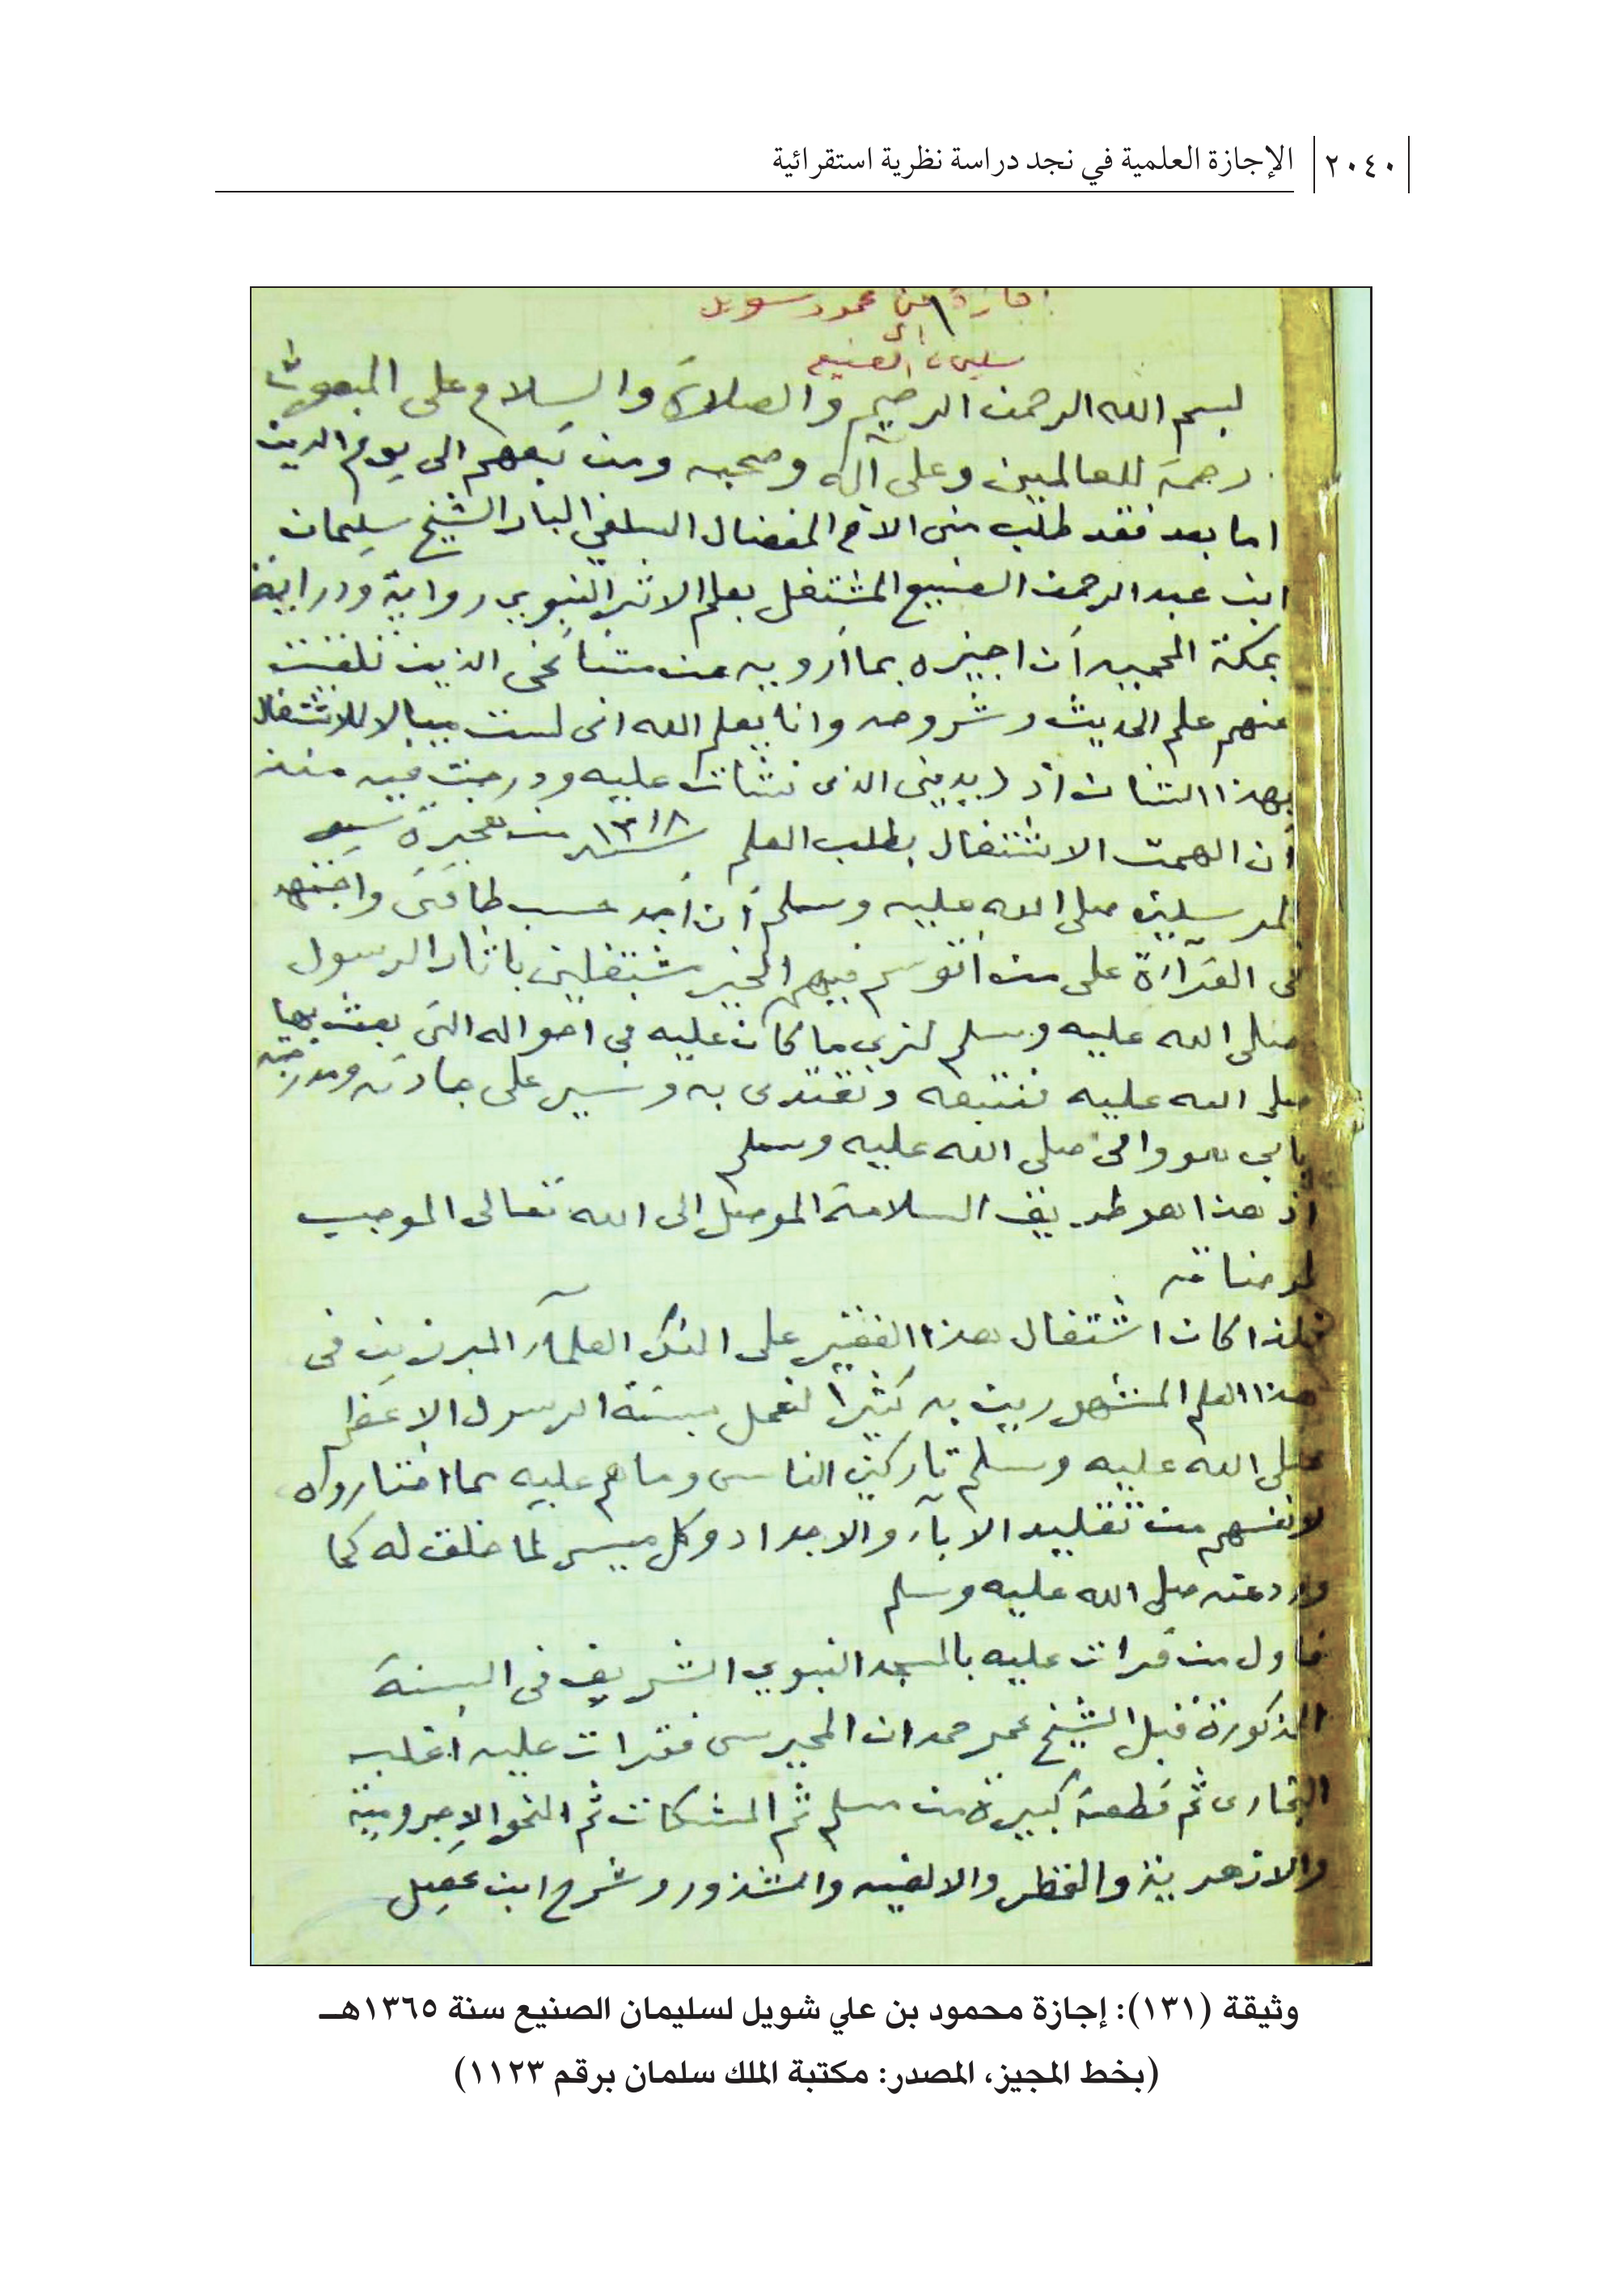 ٢٠٤٠ الإجازة العلمية في نجد دراسة نظرية استقرائية
إجازة من محمود شويل
الى
سليمان الصنيع
بسم الله الرحمن الرحيم والصلاة والسلام على المبعوث
رحمة للعالمين وعلى آله وصحبه ومن تبعهم الى يوم الدين
اما بعد فقد طلب منى الاخ المفضال السلفي البار الشيخ سليمان
ابن عبد الرحمن الصنيع المشتغل بعلم الاثر النبوي رواية ودراية
بمكة المحمية أن اجيزه بما أرويه عن مشائخى الذين تلقيت
عنهم علم الحديث وشروحه وانا يعلم الله انى لست ميالا للاشتغال
بهذا الشان اذ ديدني الذى نشات عليه ودرجت فيه منذ
أن الهمت الاشتغال بطلب العلم سنة ١٣١٨ من هجرة سيد
المرسلين صلى الله عليه وسلم أن أجد حسب طاقتى واجتهد
فى القرآءة على من أتوسم فيهم الخير مشتغلين باثار الرسول
صلى الله عليه وسلم لنرى ما كان عليه في احواله التى بعث بها
صلى الله عليه فنتبعه ونقتدى به ونسير على جادته ومدرجته
بابي هو وامى صلى الله عليه وسلم
اذ هذا هو طريق السلامة الموصل الى الله تعالى الموجب
لمرضاته
فلذا كان اشتغال هذا الفقير على العلمآء المبرزين فى
هذا العلم المشهورين به كثيرا لنعمل بسنة الرسول الاعظم
صلى الله عليه وسلم تاركين الناس وما هم عليه مما اختاروه
لانفسهم من تقليد الابآء والاجداد وكل ميسر لما خلق له كما
ورد عنه صلى الله عليه وسلم
فاول من قرات عليه بالمسجد النبوي الشريف فى السنة
المذكورة قبل الشيخ حمدان المحيرسى فقرات عليه أغلب
البخارى ثم قطعة كبيرة من مسلم ثم المشكات ثم النحو الاجرومية
والازهرية والقطر والالفيه والشذور وشرح ابن عقيل
وثيقة (١٣١): إجازة محمود بن علي شويل لسليمان الصنيع سنة ١٣٦٥هـ
(بخط المجيز، المصدر: مكتبة الملك سلمان برقم ١١٢٣)